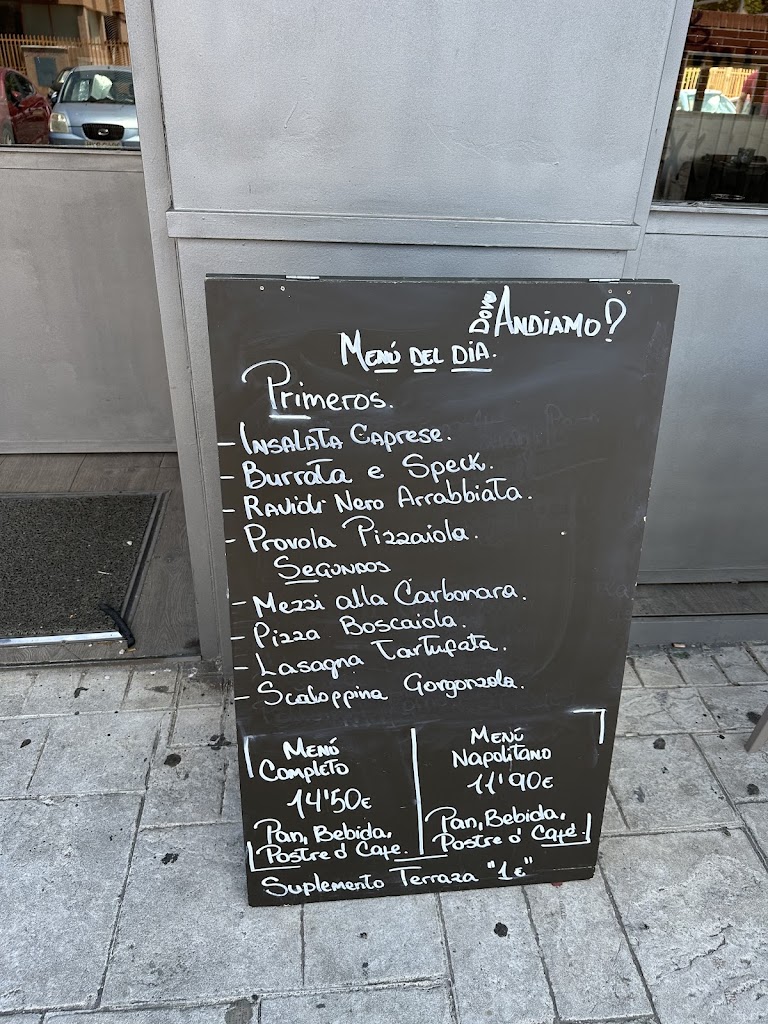 Dove
ANDIAMO?
MENÚ DEL DIA.
Primeros.
- INSALATA CAPRESE.
- Burrata e Speck.
- Ravioli Nero Arrabbiata.
- Provola Pizzaiola.
SEGUNDOS
- Mezzi alla Carbonara.
- Pizza Boscaiola.
- Lasagna Tartufata.
- Scaloppina Gorgonzola.
MENÚ
COMPLETO
14'50€
Pan, Bebida,
Postre ó Cafe.
MENÚ
NAPOLITANO
11'90€
Pan, Bebida,
Postre ó Café.
Suplemento Terraza "1€"